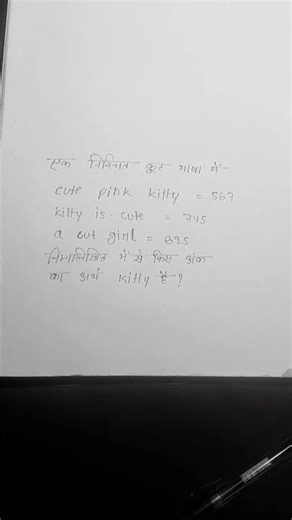 एक निश्चित कूट भाषा में
cute pink kitty = 567
kitty is cute = 745
a cut girl = 895
निम्नलिखित में से किस अंक
का अर्थ kitty है ?